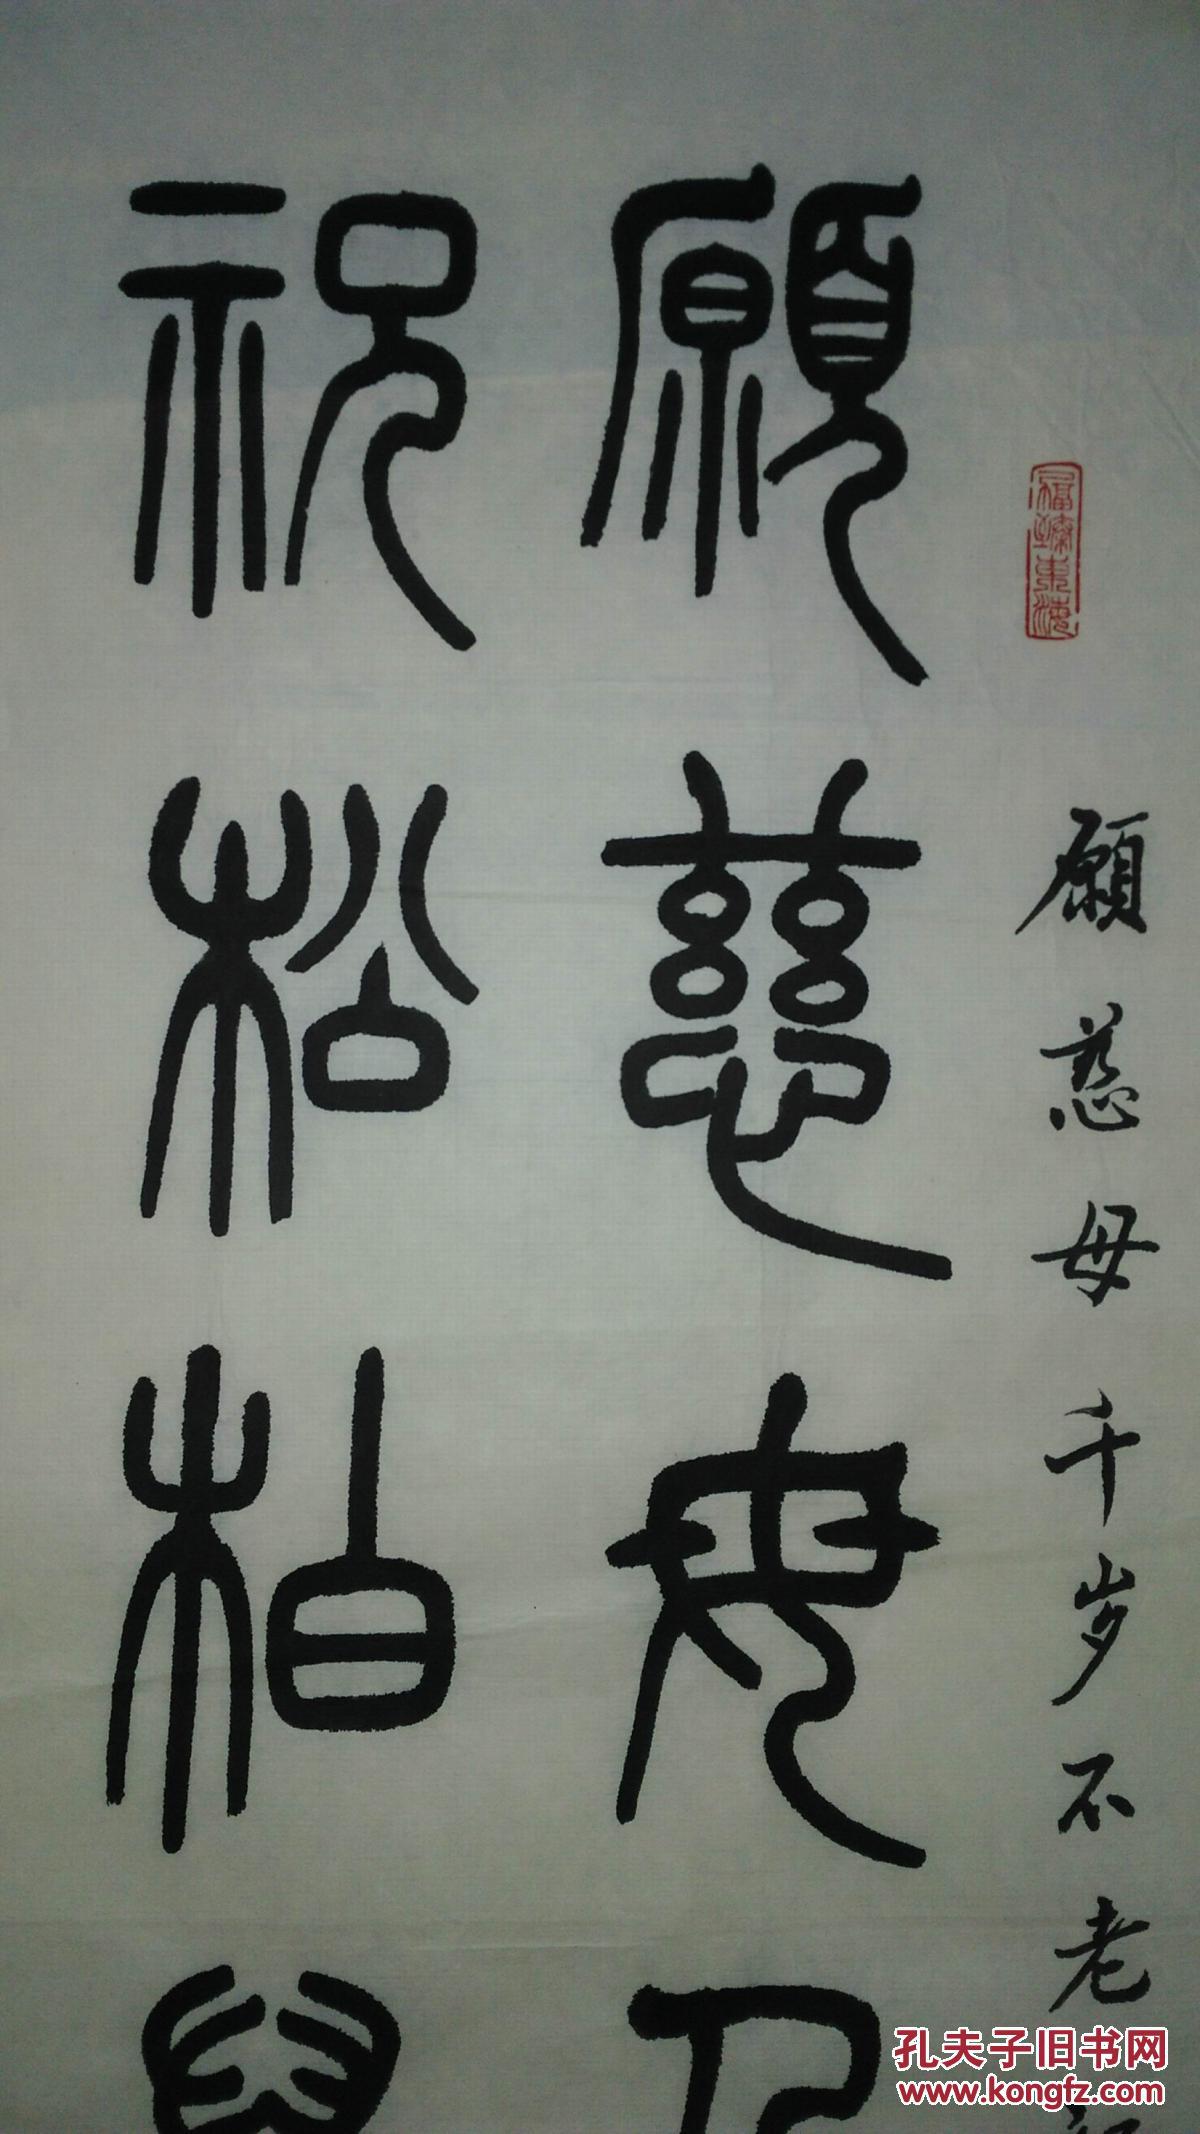 福臻东海
願慈母千岁不老
願慈母
祝松柏
孔夫子旧书网
www.kongfz.com